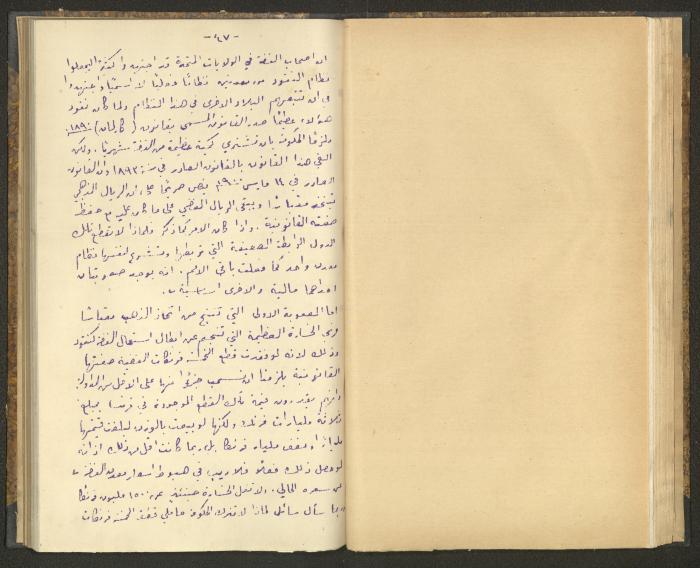 - ٤٧ -
ان اصحاب الفضة في الولايات المتحدة قد اجتهدوا كثيرا ليجعلوا
نظام النقود من معدنين نظاما دوليا لا اسميا واجتهدوا
في ان تتبعهم البلاد الاخرى في هذا النظام ولما كان نفوذ
هؤلاء عظيما صدر القانون المسمى بقانون (           ) ١٨٩٠
ملزما الحكومة بان تشتري كمية عظيمة من الفضة شهريا. ولكن
الغي هذا القانون بالقانون الصادر في سنة ١٨٩٣ وان القانون
الصادر في ١٤ مارس ١٩٠٠ ينص صريحا على ان الريال الذهبي
يتخذ مقياسا ويبقى الريال الفضي على ما كان عليه مع حفظ
صفته القانونية. واذا كان الامر كما ذكر فلماذا لا تقطع تلك
الدول الرابطة الضعيفة التي تربطها وتشرع لنفسها نظام
معدن واحد كما فعلت باقي الامم. انه يوجد صعوبتان
احداهما مالية والاخرى سياسية
اما الصعوبة الاولى التي تنتج من اتخاذ الذهب مقياسا
فهي الخسارة العظيمة التي تنجم عن ابطال استعمال الفضة كنقود
وذلك لانه لو فقدت قطع الخمسة فرنكات الفضية صفتها
القانونية يلزمنا ان نسحب جزءا منها على الاقل من التداول
وانهم يقدرون قيمة تلك القطع الموجودة في فرنسا بمبلغ
ثلاثة مليارات فرنك ولكنها لو بيعت بالوزن لبلغت قيمتها
مليارا ونصف مليار فرنكا بل ربما كانت اقل من ذلك اذ انه
لو حصل ذلك فعلا فلا ريب في هبوط اسعار معدن الفضة
عن سعره الحالي. ولا تقل الخسارة حينئذ عن ١٥٠٠ مليون فرنكا
ربما سأل سائل لماذا لا تترك الحكومة حاملي قطع الخمسة فرنكات